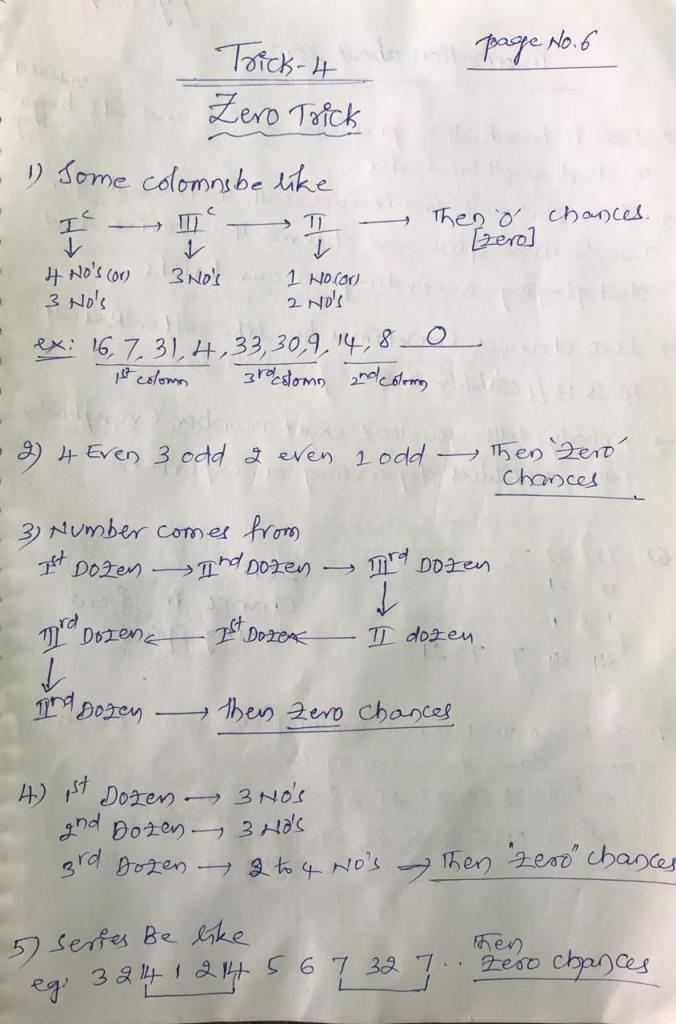 page No.6
Trick-4
Zero Trick
1) Some colomns be like
I^c → III^c → II → Then 'o' chances.
[zero]
↓ ↓ ↓
4 No's (or) 3 No's 1 No.(or)
3 No's 2 No's
ex: 16, 7, 31, 4, 33, 30, 9, 14, 8 0
1st colomn 3rd colomn 2nd colomn
2) 4 Even 3 odd 2 even 1 odd → Then 'zero'
chances
3) Number comes from
Ist Dozen → IInd Dozen → IIIrd Dozen
↓
IIIrd Dozen ← Ist Dozen ← II dozen
↓
IInd Dozen → Then zero chances
4) 1st Dozen → 3 No's
2nd Dozen → 3 No's
3rd Dozen → 2 to 4 No's → Then "zero" chances
5) Series Be like
Then
eg: 3 2 14 1 2 14 5 6 7 32 7.. zero chances